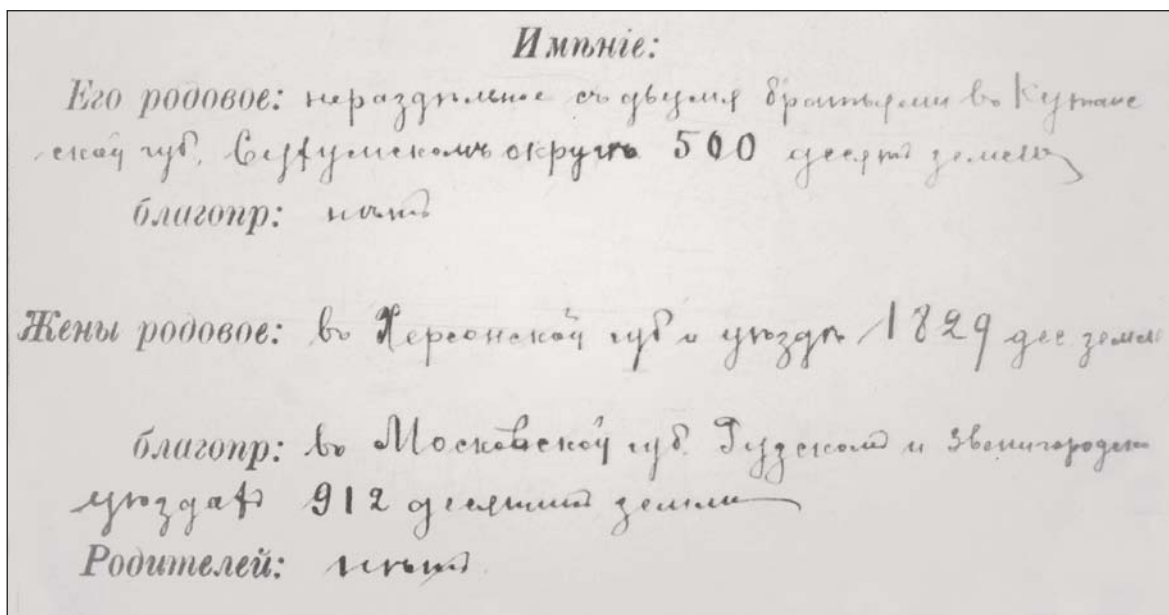 Имѣніе:
Его родовое: нераздѣльное съ двумя братьями въ Кутаис
ской губ. Сухумскомъ округѣ 500 десят земли
благопр: нѣтъ
Жены родовое: въ Херсонской губ и уѣздѣ 1829 дес земли
благопр: въ Московской губ. Рузскомъ и Звенигородско
уѣздахъ 912 десятинъ земли
Родителей: нѣтъ